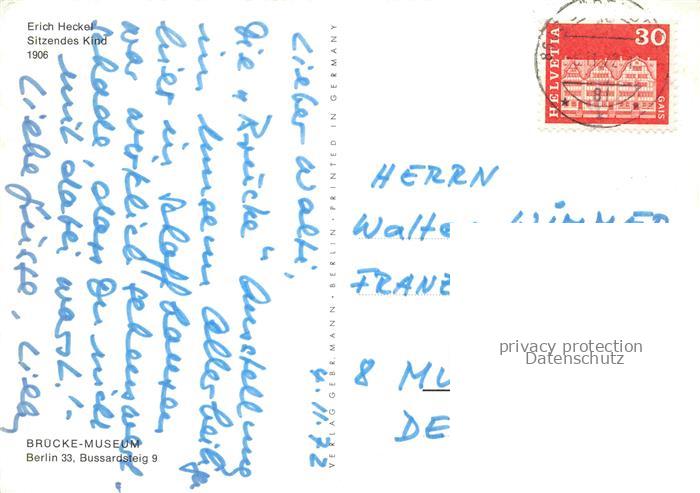 Erich Heckel
Sitzendes Kind
1906
Lieber Walti,
Die "Brücke" Ausstellung
im Museum Allerheiligen
hier in Schaffhausen
war wirklich sehenswert.
Schade, dass Du nicht
mit dabei warst!
Liebe Grüsse,
4.11.72
BRÜCKE-MUSEUM
Berlin 33, Bussardsteig 9
VERLAG GEBR. MANN · BERLIN · PRINTED IN GERMANY
HELVETIA
30
GAIS
HERRN
Walte WIMMER
FRANZ
8 MU
DE
privacy protection
Datenschutz